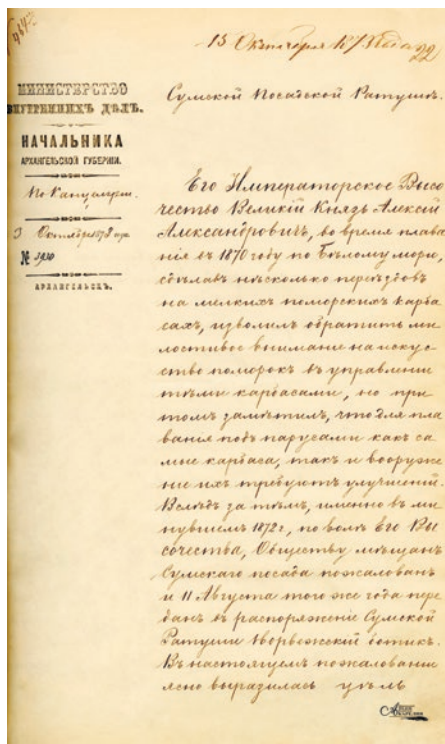 13 Октября 1873 года
22
МИНИСТЕРСТВО
ВНУТРЕННИХЪ ДѢЛЪ.
НАЧАЛЬНИКА
АРХАНГЕЛЬСКОЙ ГУБЕРНІИ.
По Канцеляріи.
3 Октября 1873 года
№ 3930
АРХАНГЕЛЬСКЪ.
Сумской Посадской Ратушѣ.
Его Императорское Высо
чество Великій Князь Алексій
Александровичъ, во время плава
нія въ 1870 году по Бѣлому морю,
сдѣлавъ нѣсколько переѣздовъ
на мелкихъ поморскихъ карба
сахъ, изволилъ обратить ми
лостивое вниманіе на искус
ство поморокъ въ управленіи
тѣми карбасами, но при
томъ замѣтилъ, что для пла
ванія подъ парусами какъ са
мые карбаса, такъ и вооруже
ніе ихъ требуютъ улучшеній.
Вслѣдъ за тѣмъ, именно въ ми
нувшемъ 1872 г, по волѣ Его Вы
сочества, Обществу мѣщанъ
Сумскаго посада пожалованъ
и 11 Августа того же года пере
данъ въ распоряженіе Сумской
Ратуши Норвежскій ботикъ.
Въ настоящемъ пожалованіи
ясно выразилась цѣль